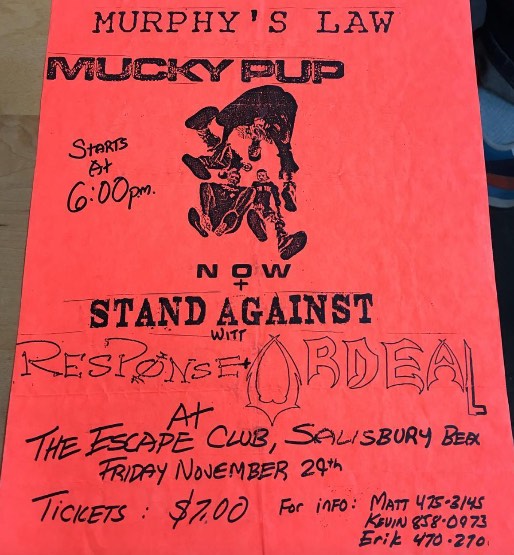 MURPHY'S LAW
MUCKY PUP
STARTS
At
6:00pm.
NOW
+
STAND AGAINST
WITT
RESPONSE + ORDEAL
At
THE ESCAPE CLUB, SALISBURY
FRIDAY NOVEMBER 29th
TICKETS : $7.00
For info: MATT 475-3145
KEVIN 858-0973
Erik 470-270